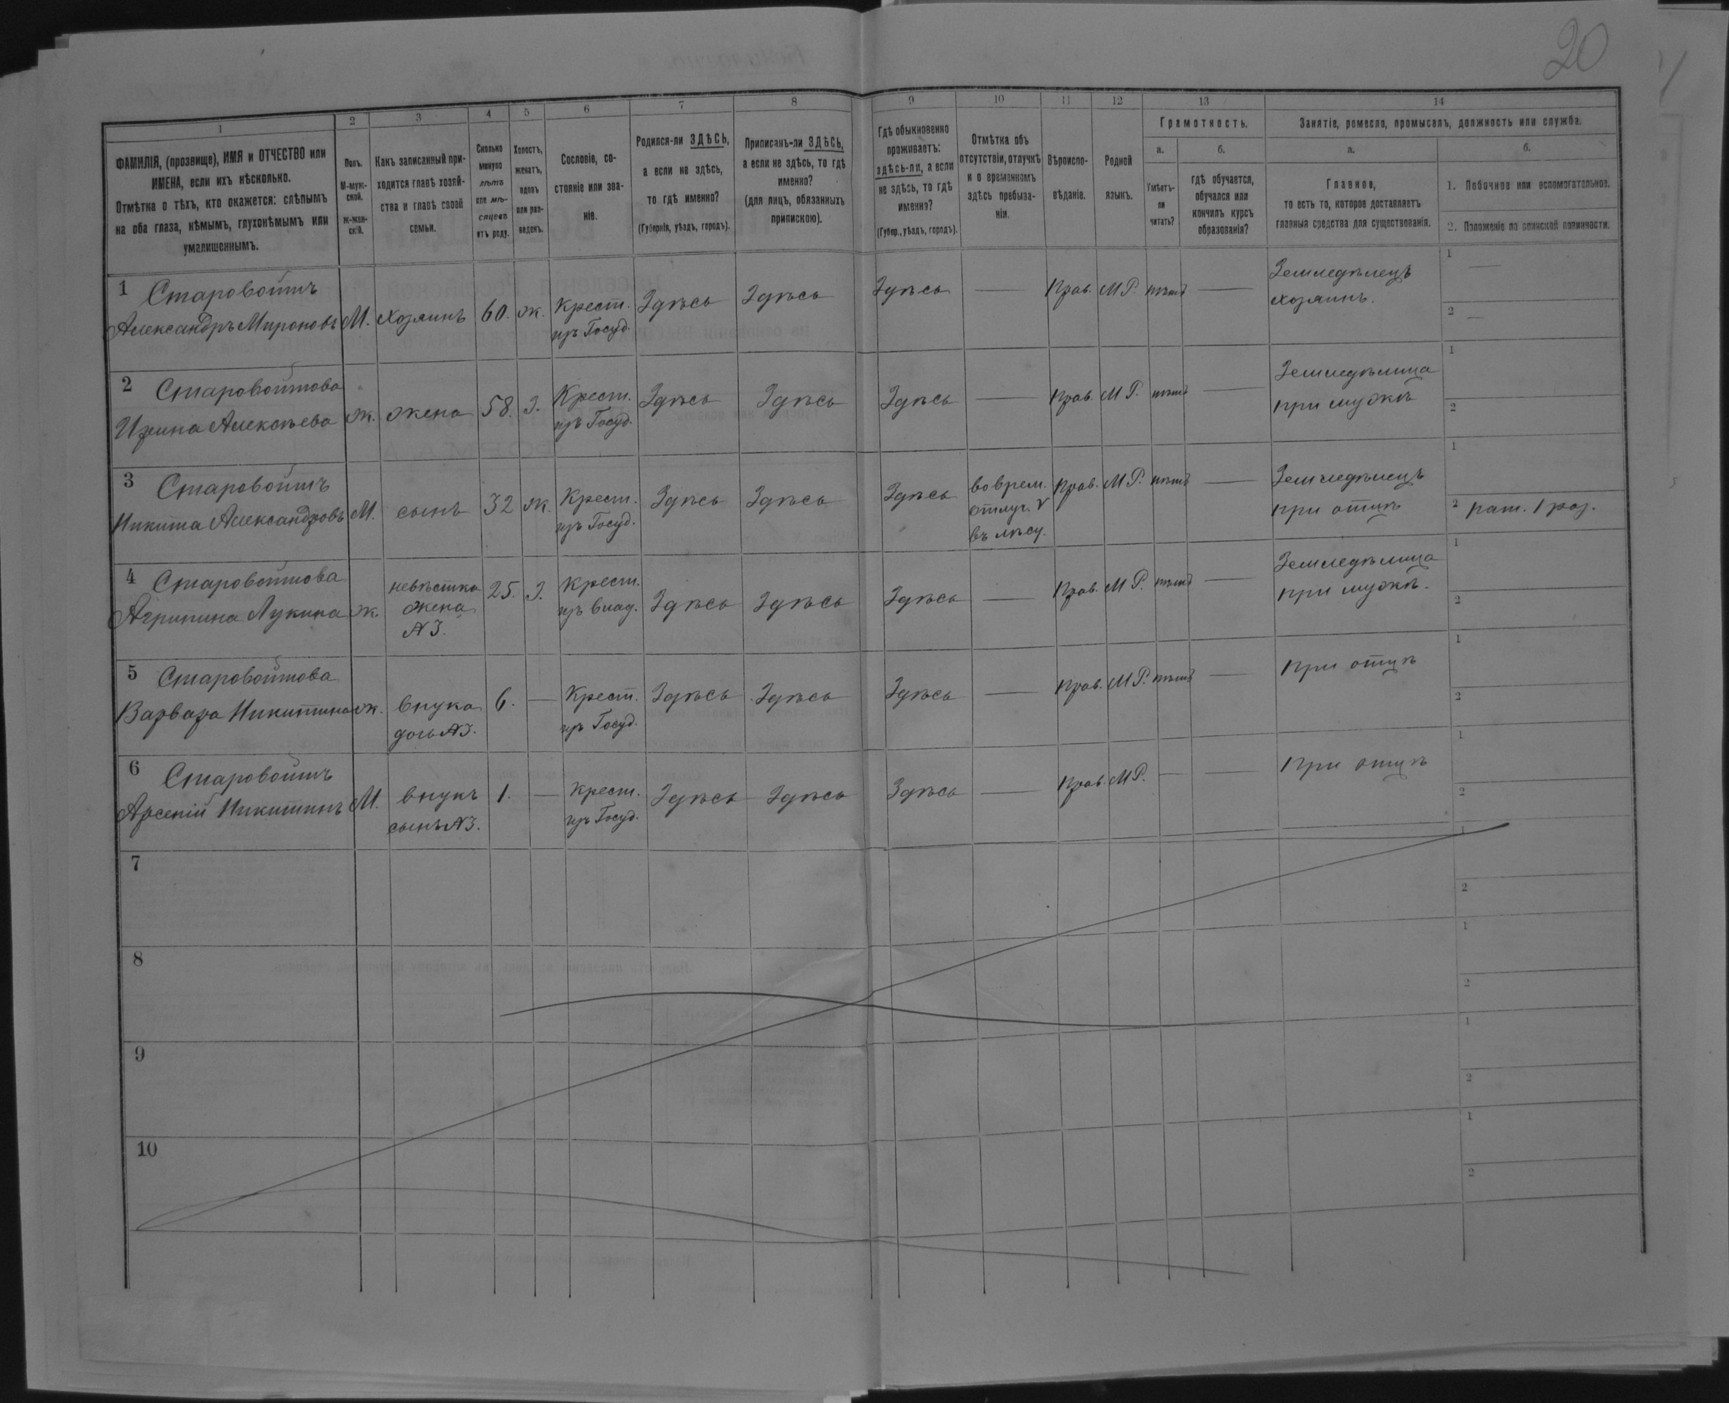 20
1 2 3 4 5 6 7 8 9 10 11 12 13 14
ФАМИЛІЯ, (прозвище), ИМЯ и ОТЧЕСТВО или
ИМЕНА, если ихъ нѣсколько.
Отмѣтка о тѣхъ, кто окажется: слѣпымъ
на оба глаза, нѣмымъ, глухонѣмымъ или
умалишеннымъ.
Полъ.
М-муж-
ской.
Ж-жен-
скій.
Какъ записанный при-
ходится главѣ хозяй-
ства и главѣ своей
семьи.
Сколько
минуло
лѣтъ
или мѣ-
сяцевъ
отъ роду.
Холостъ,
женатъ,
вдовъ
или раз-
веденъ.
Сословіе, со-
стояніе или зва-
ніе.
Родился-ли ЗДѢСЬ,
а если не здѣсь,
то гдѣ именно?
(Губернія, уѣздъ, городъ).
Приписанъ-ли ЗДѢСЬ,
а если не здѣсь, то гдѣ
именно?
(для лицъ, обязанныхъ
припискою).
Гдѣ обыкновенно
проживаетъ:
здѣсь-ли, а если
не здѣсь, то гдѣ
именно?
(Губер., уѣздъ, городъ).
Отмѣтка объ
отсутствіи, отлучкѣ
и о временномъ
здѣсь пребыва-
ніи.
Вѣроиспо-
вѣданіе.
Родной
языкъ.
Грамотность.
а.
Умѣетъ-
ли
читать?
б.
гдѣ обучается,
обучался или
кончилъ курсъ
образованія?
Занятіе, ремесло, промыселъ, должность или служба.
а.
Главное,
то есть то, которое доставляетъ
главныя средства для существованія.
б.
1. Побочное или вспомогательное.
2. Положеніе по воинской повинности.
1 Старовойтъ
Александръ Мироновъ М. хозяинъ 60. ж. Крест. изъ Госуд. Здѣсь Здѣсь Здѣсь — Прав. М.Р. нѣтъ — Земледѣлецъ хозяинъ. 1 — 2 —
2 Старовойтова
Ирина Алексѣева ж. жена 58. З. Крест. изъ Госуд. Здѣсь Здѣсь Здѣсь — Прав. М.Р. нѣтъ — Земледѣлица при мужѣ 1 2
3 Старовойтъ
Никита Александровъ М. сынъ 32 ж. Крест. изъ Госуд. Здѣсь Здѣсь Здѣсь во врем. отлуч. въ лѣсу. Прав. М.Р. нѣтъ — Земледѣлецъ при отцѣ 1 2 рат. 1 раз.
4 Старовойтова
Агрипина Лукина ж. невѣстка жена №3. 25. З. Крест. изъ влад. Здѣсь Здѣсь Здѣсь — Прав. М.Р. нѣтъ — Земледѣлица при мужѣ. 1 2
5 Старовойтова
Варвара Никитина ж. внука дочь №3. 6. — Крест. изъ Госуд. Здѣсь Здѣсь Здѣсь — Прав. М.Р. нѣтъ — при отцѣ 1 2
6 Старовойтъ
Арсеній Никитинъ М. внукъ сынъ №3. 1. — Крест. изъ Госуд. Здѣсь Здѣсь Здѣсь — Прав. М.Р. — — при отцѣ 1 2
7 1 2
8 1 2
9 1 2
10 1 2